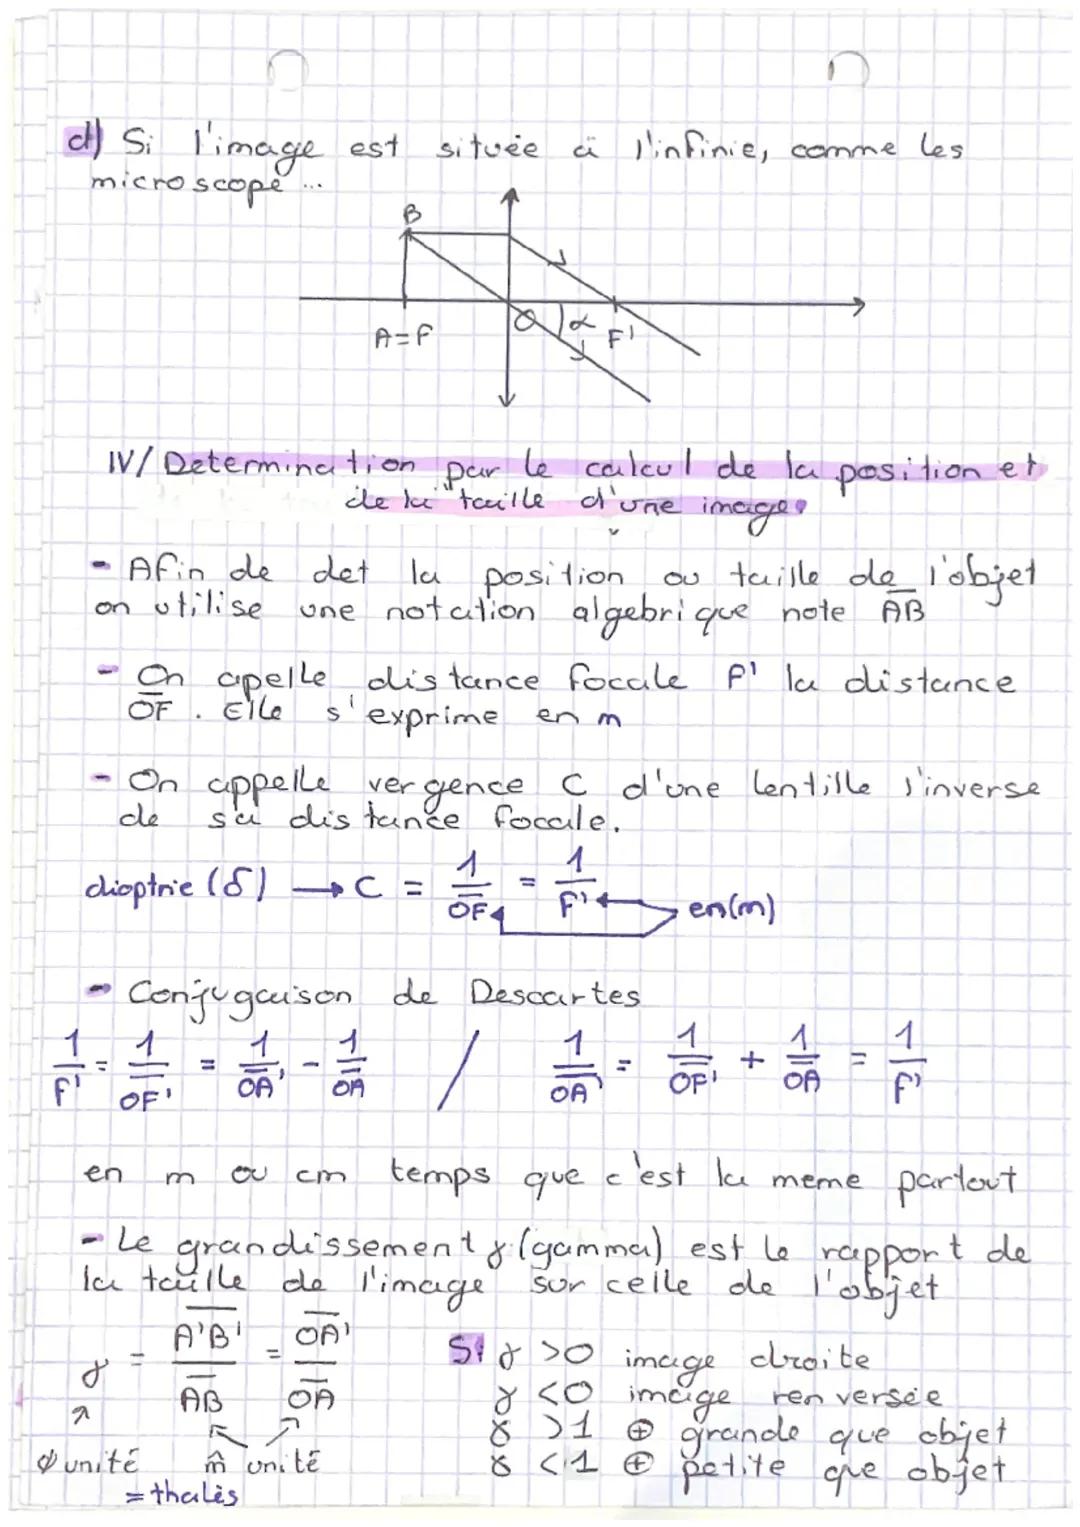 d) Si l'image est située à l'infinie, comme les
microscope ...
B
O
α
A=F
F'
IV/ Determination par le calcul de la position et
de la taille d'une image.
- Afin de det la position ou taille de l'objet
on utilise une notation algebrique note A̅B̅
- On apelle distance focale f' la distance
O̅F̅. Elle s'exprime en m
- On appelle vergence C d'une lentille l'inverse
de sa distance focale.
dioptrie (δ) → C = 1/O̅F̅ = 1/F' en(m)
- Conjugaison de Descartes
1/F' = 1/O̅F̅' = 1/O̅A̅' - 1/O̅A̅ / 1/O̅A̅' = 1/O̅F̅' + 1/O̅A̅ = 1/F'
en m ou cm temps que c'est la meme partout
- Le grandissement γ (gamma) est le rapport de
la taille de l'image sur celle de l'objet
γ = A̅'B̅'/A̅B̅ = O̅A̅'/O̅A̅
Si γ >0 image droite
γ <0 image renversée
γ >1 ⊕ grande que objet
γ <1 ⊕ petite que objet
∅ unité m̂ unité
= thalès